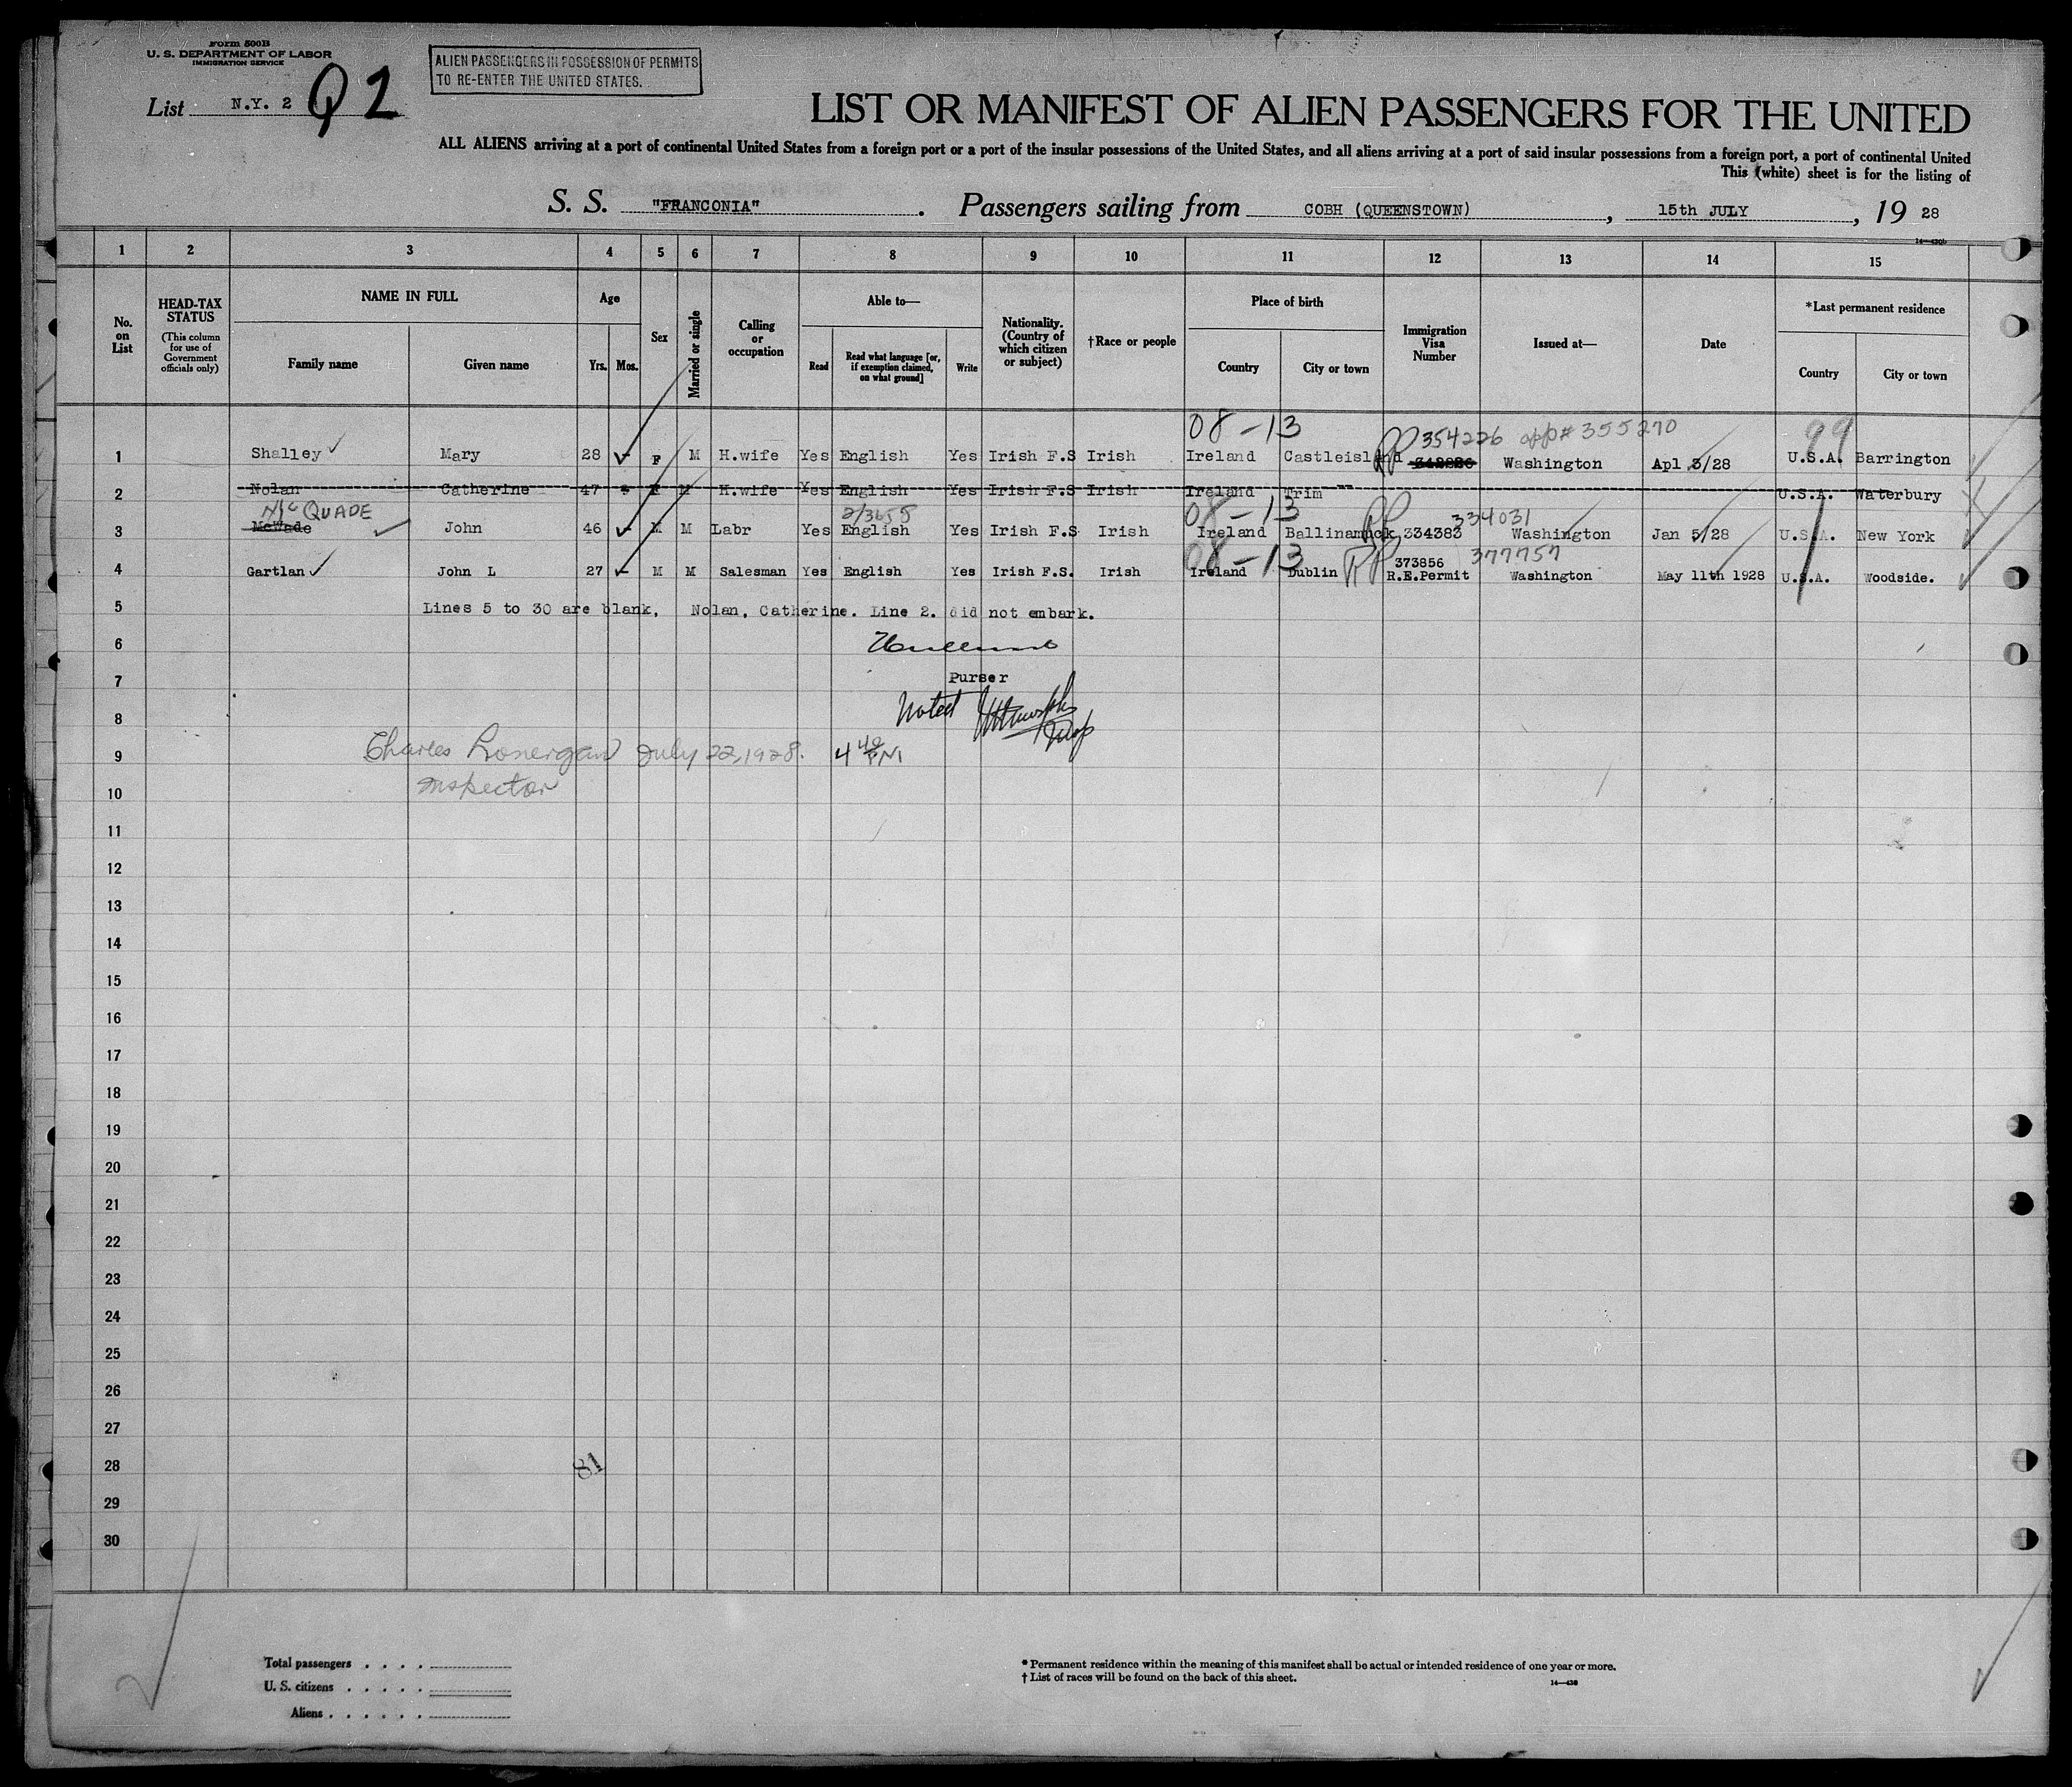 Form 500B
U. S. DEPARTMENT OF LABOR
IMMIGRATION SERVICE
ALIEN PASSENGERS IN POSSESSION OF PERMITS
TO RE-ENTER THE UNITED STATES.
List N.Y. 2 Q 2
LIST OR MANIFEST OF ALIEN PASSENGERS FOR THE UNITED
ALL ALIENS arriving at a port of continental United States from a foreign port or a port of the insular possessions of the United States, and all aliens arriving at a port of said insular possessions from a foreign port, a port of continental United
This (white) sheet is for the listing of
S. S. "FRANCONIA". Passengers sailing from COBH (QUEENSTOWN), 15th JULY, 19 28
1 2 3 4 5 6 7 8 9 10 11 12 13 14 15
No. on List
HEAD-TAX STATUS
(This column for use of Government officials only)
NAME IN FULL
Family name
Given name
Age
Yrs. Mos.
Sex
Married or single
Calling or occupation
Able to—
Read
Read what language [or, if exemption claimed, on what ground]
Write
Nationality. (Country of which citizen or subject)
†Race or people
Place of birth
Country
City or town
Immigration Visa Number
Issued at—
Date
*Last permanent residence
Country
City or town
08-13 RP 354226 app# 355270 99
1 Shalley Mary 28 F M H.wife Yes English Yes Irish F.S Irish Ireland Castleisland 342226 Washington Apl 3/28 U.S.A. Barrington
2 Nolan Catherine 47 F M H.wife Yes English Yes Irish F.S Irish Ireland Trim U.S.A. Waterbury
McQUADE 2/3655 08-13 RP 334031
3 McWade John 46 M M Labr Yes English Yes Irish F.S Irish Ireland Ballinamuck 334383 Washington Jan 5/28 U.S.A. New York
08-13 RP 373856 377757
4 Gartlan John L 27 M M Salesman Yes English Yes Irish F.S. Irish Ireland Dublin R.E.Permit Washington May 11th 1928 U.S.A. Woodside.
5 Lines 5 to 30 are blank, Nolan, Catherine. Line 2. did not embark.
6
7 Purser
8 Noted
9 Charles Lonergan July 22, 1928. 4 40 PM
10 Inspector
11
12
13
14
15
16
17
18
19
20
21
22
23
24
25
26
27
28 81
29
30
Total passengers . . . .
U. S. citizens . . . . .
Aliens . . . . . .
* Permanent residence within the meaning of this manifest shall be actual or intended residence of one year or more.
† List of races will be found on the back of this sheet.
14—430